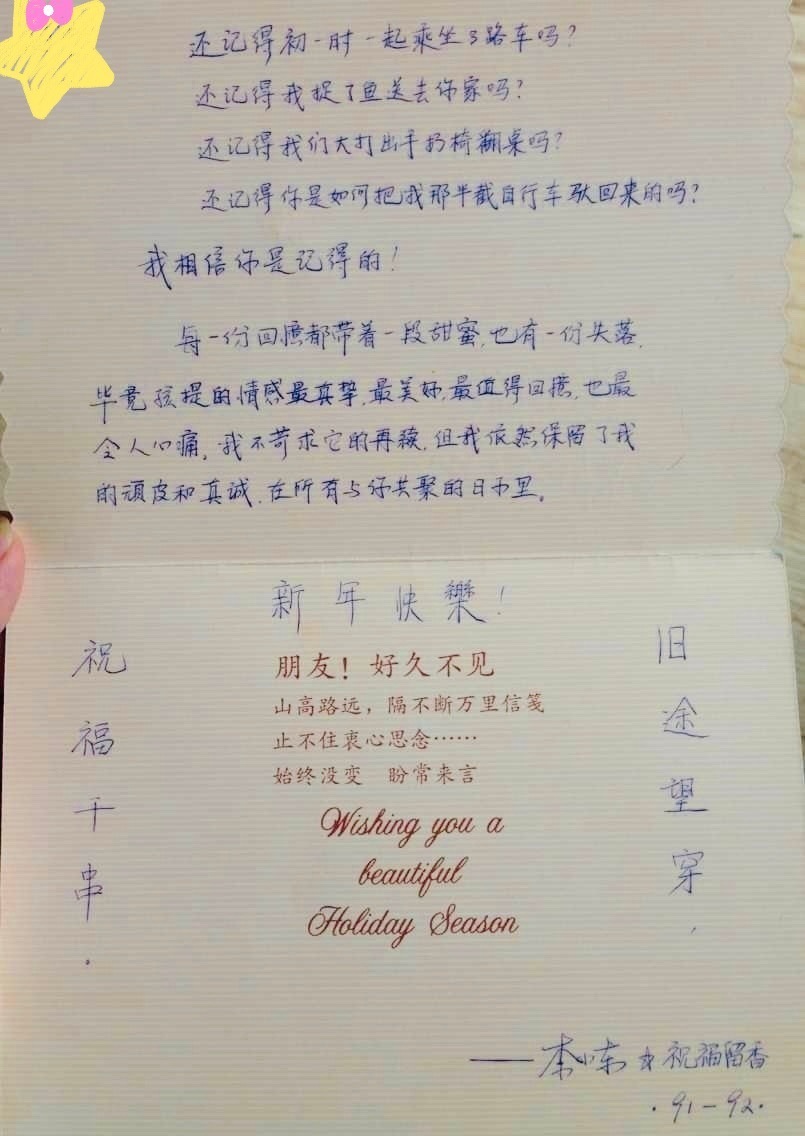 还记得初一时一起乘坐3路车吗？
还记得我捉了鱼送去你家吗？
还记得我们大打出手扔椅翻桌吗？
还记得你是如何把我那半截自行车驮回来的吗？
我相信你是记得的！
每一份回憶都带着一段甜蜜，也有一份失落，
毕竟孩提的情感最真挚，最美好，最值得回憶，也最
令人心痛，我不苛求它的再续，但我依然保留了我
的顽皮和真诚，在所有与你共聚的日子里。
新年快樂！
旧途望穿，
祝福千串。
朋友！好久不见
山高路远，隔不断万里信笺
止不住衷心思念……
始终没变 盼常来言
Wishing you a
beautiful
Holiday Season
——李 祝福留香
·91－92·